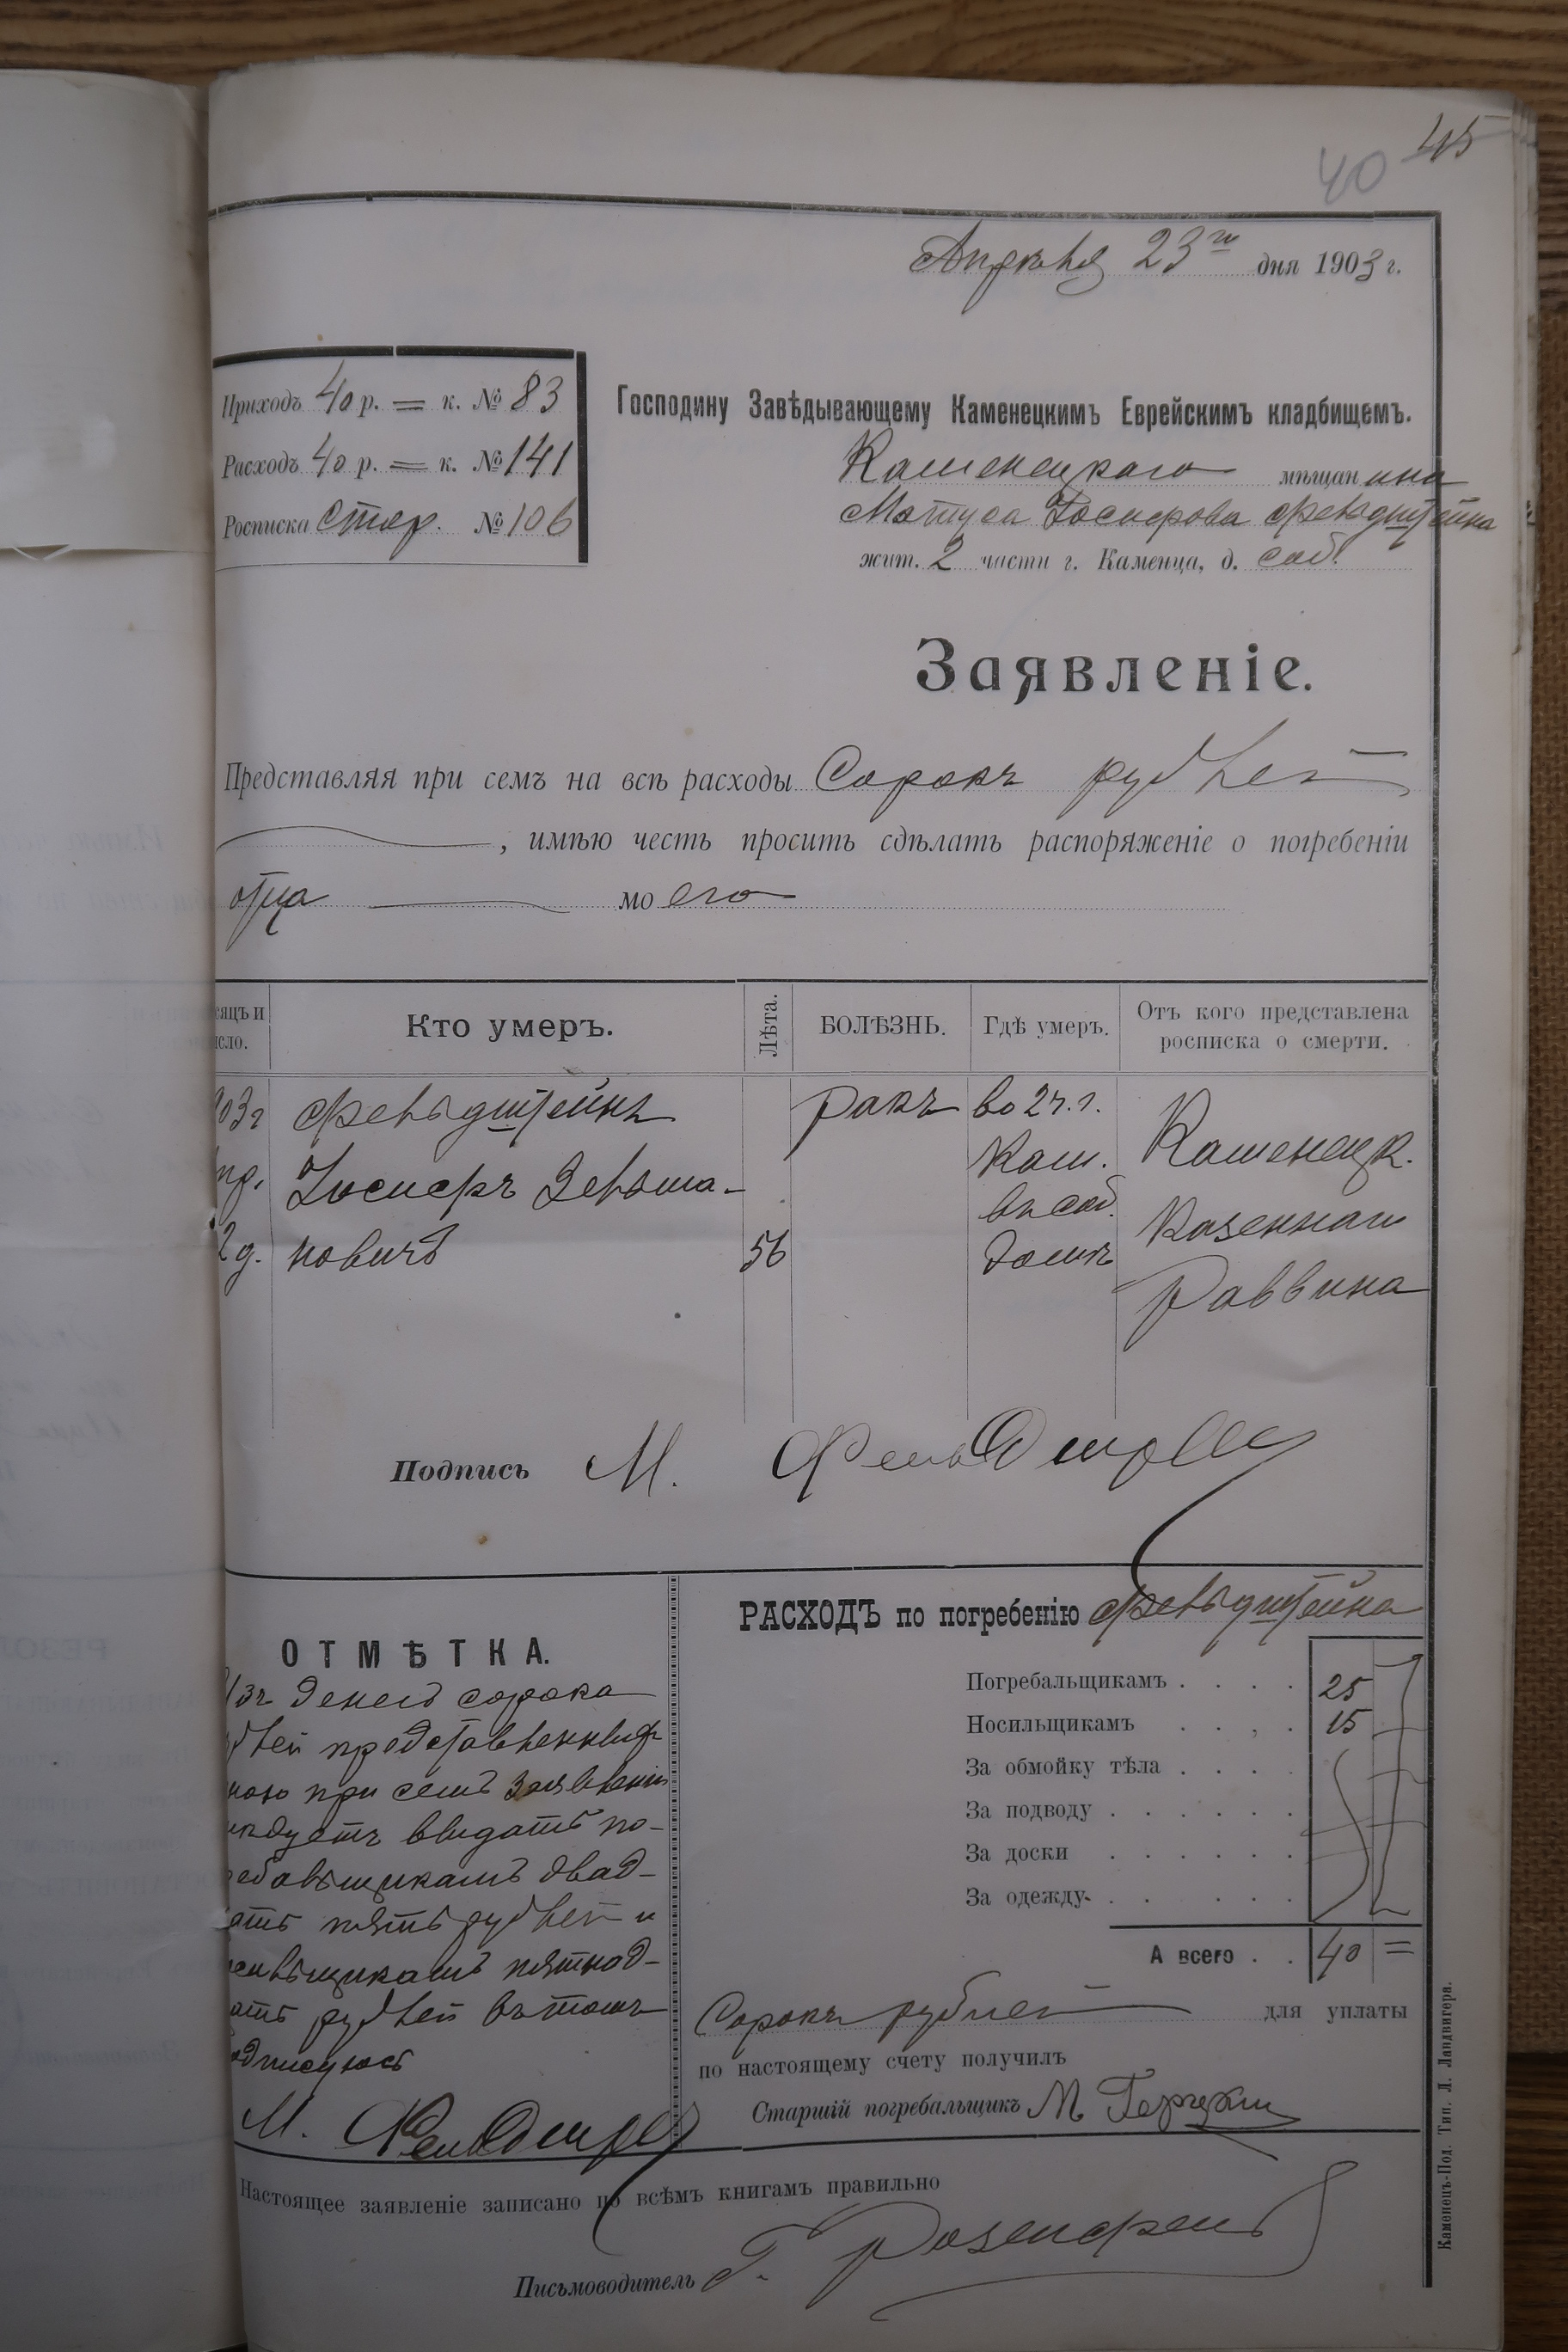 45
40
Апрѣля 23го дня 1903 г.
Приходъ 40 р. = к. № 83
Расходъ 40 р. = к. № 141
Росписка стар. № 106
Господину Завѣдывающему Каменецкимъ Еврейскимъ кладбищемъ.
Каменецкаго мѣщанина
Мотуса Іосиферова Фельдштейна
жит. 2 части г. Каменца, д. соб.
Заявленіе.
Представляя при семъ на всѣ расходы Сорокъ рублей
, имѣю честь просить сдѣлать распоряженіе о погребеніи
отца моего
сяцъ и
исло.
Кто умеръ.
Лѣта.
БОЛѢЗНЬ.
Гдѣ умеръ.
Отъ кого представлена
росписка о смерти.
903 г
пр.
2 д.
Фельдштейнъ
Іосиферъ Зельма-
новичъ
56
ракъ
во 2 ч. г.
Кам.
въ соб.
домѣ
Каменецк.
Казеннаго
Раввина
Подпись М. Фельдште
ОТМѢТКА.
Изъ денегъ сорока
блей представленныхъ
мною при семъ заявленіи
лѣдуетъ выдать по-
ребальщикамъ двад-
ать пять рублей и
сильщикамъ пятнад-
ать рублей въ томъ
одписуюсь
М. Фельдште
РАСХОДЪ по погребенію Фельдштейна
Погребальщикамъ . . . . 25
Носильщикамъ . . . . 15
За обмойку тѣла . . . .
За подводу . . . . . .
За доски . . . . . .
За одежду . . . . . .
А всего . . 40 =
Сорокъ рублей для уплаты
по настоящему счету получилъ
Старшій погребальщикъ М.
Настоящее заявленіе записано по всѣмъ книгамъ правильно
Письмоводитель Г. Розенфельд
Каменецъ-Под. Тип. Л. Ландвигера.